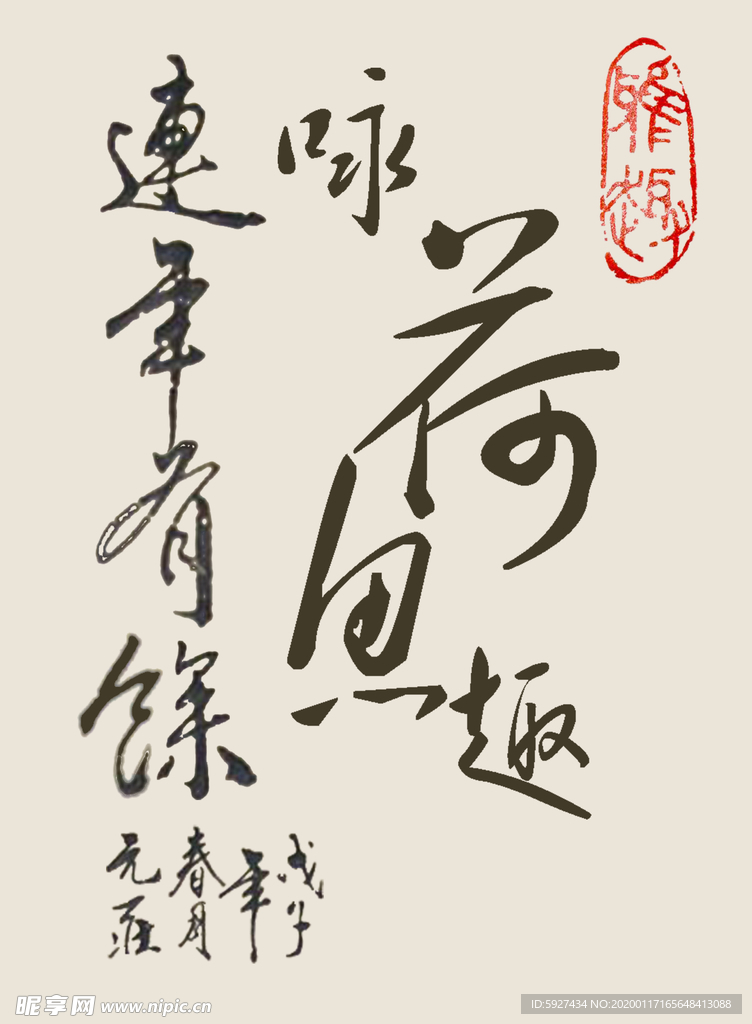 雅趣
咏荷鱼趣
連年有餘
戊子
年
春月
元
昵享网 www.nipic.cn
ID:5927434 NO:20200117165648413088